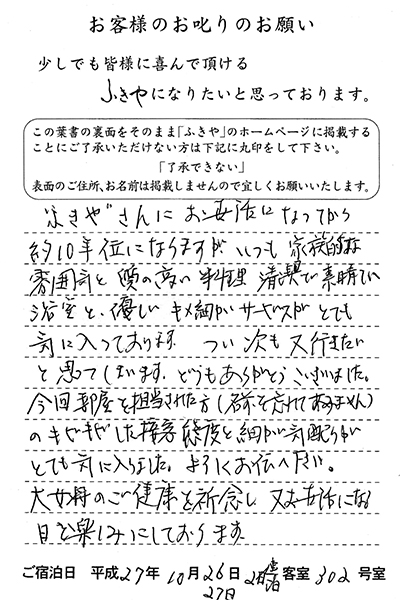 お客様のお叱りのお願い
少しでも皆様に喜んで頂ける
ふきやになりたいと思っております。
この葉書の裏面をそのまま「ふきや」のホームページに掲載する
ことにご了承いただけない方は下記に丸印をして下さい。
「了承できない」
表面のご住所、お名前は掲載しませんので宜しくお願いいたします。
"ふきや"さんに お世話になってから
約10年位になりますが いつも 家族的な
雰囲気と 質の高い 料理 清潔で素晴しい
浴室と、優しい キメ細かいサービスが とても
気に入っております。 つい 次も 又行きたい
と思ってしまいます。どうもありがとうございました。
今回部屋を担当された方(名前を忘れてすみません)
のキビキビした接客態度と細かい気配りが
とても 気に入りました。よろしくお伝え下さい。
大女将のご健康を祈念し 又お世話になる
日を楽しみにしております。
ご宿泊日 平成27年 10月26日 2連泊 客室 302号室
27日